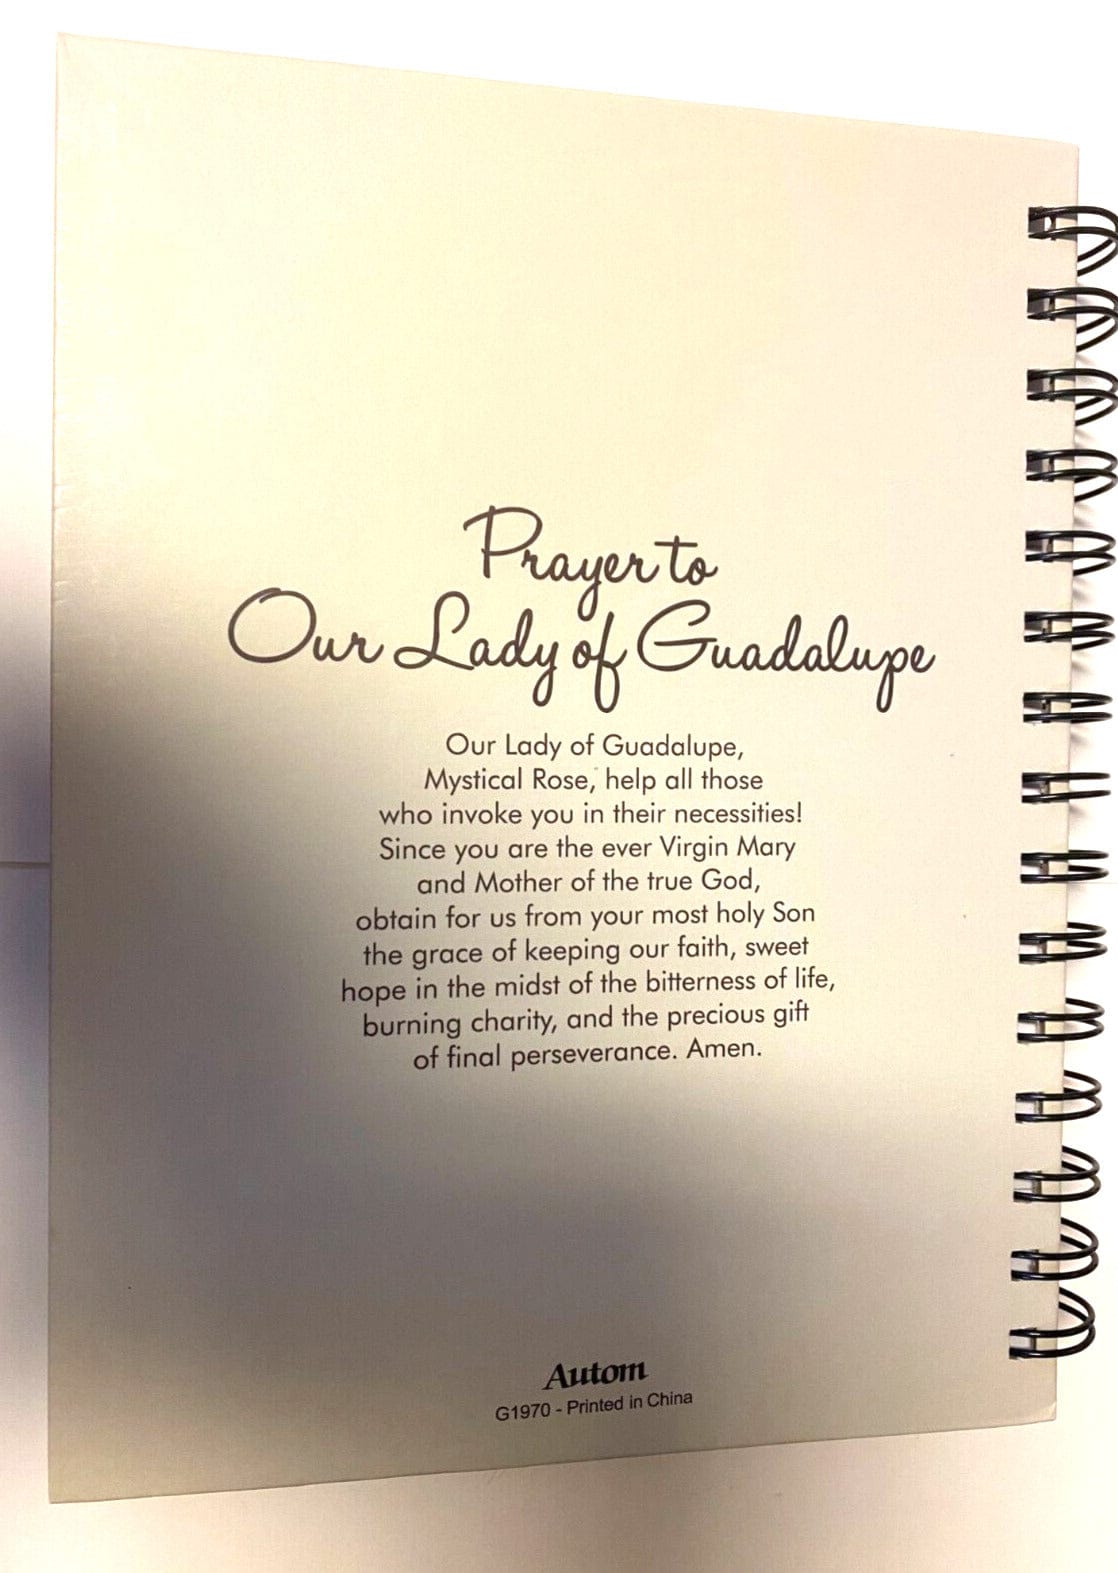 Prayer to
Our Lady of Guadalupe
Our Lady of Guadalupe,
Mystical Rose, help all those
who invoke you in their necessities!
Since you are the ever Virgin Mary
and Mother of the true God,
obtain for us from your most holy Son
the grace of keeping our faith, sweet
hope in the midst of the bitterness of life,
burning charity, and the precious gift
of final perseverance. Amen.
Autom
G1970 - Printed in China